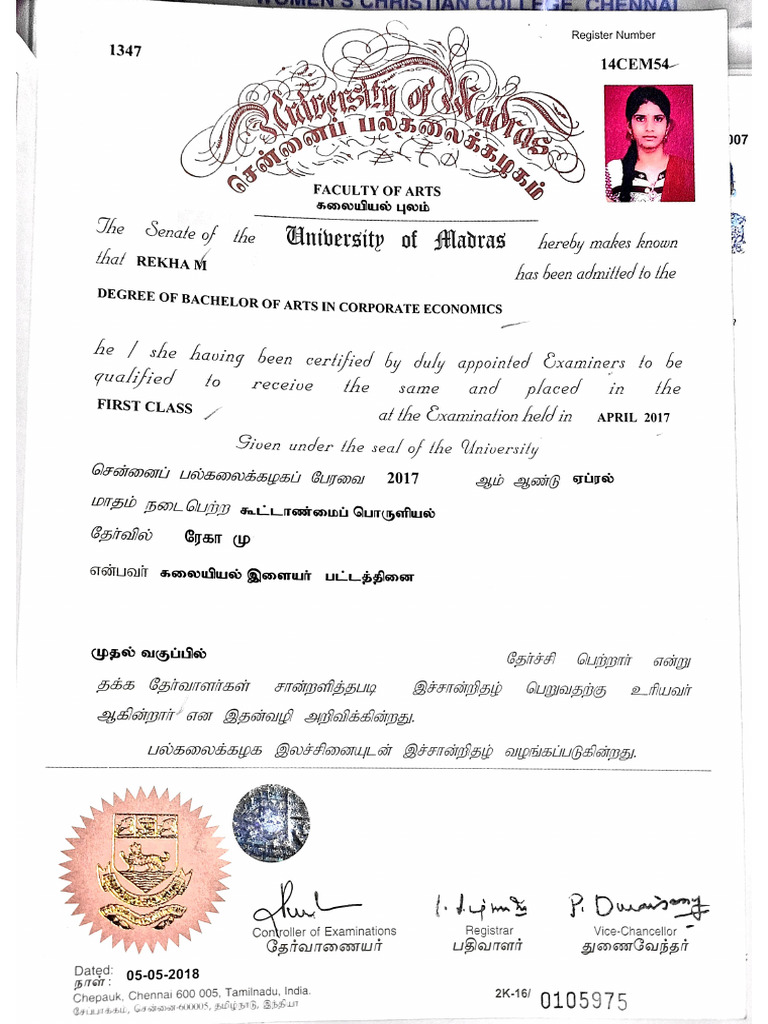 WOMEN'S CHRISTIAN COLLEGE, CHENNAI
Register Number
1347
14CEM54
University of Madras
சென்னைப் பல்கலைக்கழகம்
007
FACULTY OF ARTS
கலையியல் புலம்
The Senate of the University of Madras hereby makes known
that REKHA M has been admitted to the
DEGREE OF BACHELOR OF ARTS IN CORPORATE ECONOMICS
he / she having been certified by duly appointed Examiners to be
qualified to receive the same and placed in the
FIRST CLASS at the Examination held in APRIL 2017
Given under the seal of the University
சென்னைப் பல்கலைக்கழகப் பேரவை 2017 ஆம் ஆண்டு ஏப்ரல்
மாதம் நடைபெற்ற கூட்டாண்மைப் பொருளியல்
தேர்வில் ரேகா மு
என்பவர் கலையியல் இளையர் பட்டத்தினை
முதல் வகுப்பில் தேர்ச்சி பெற்றார் என்று
தக்க தேர்வாளர்கள் சான்றளித்தபடி இச்சான்றிதழ் பெறுவதற்கு உரியவர்
ஆகின்றார் என இதன்வழி அறிவிக்கின்றது.
பல்கலைக்கழக இலச்சினையுடன் இச்சான்றிதழ் வழங்கப்படுகின்றது.
Controller of Examinations Registrar Vice-Chancellor
தேர்வாணையர் பதிவாளர் துணைவேந்தர்
Dated:
நாள் : 05-05-2018
Chepauk, Chennai 600 005, Tamilnadu, India.
சேப்பாக்கம், சென்னை-600005, தமிழ்நாடு, இந்தியா
2K-16/ 0105975